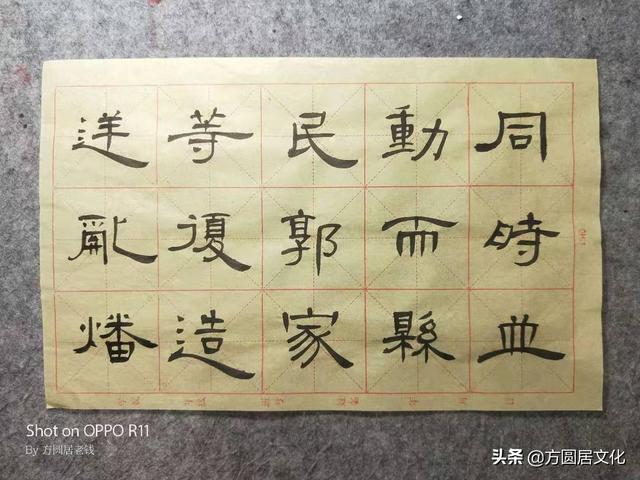 同時並
動而縣
民郭家
等復造
逆亂燔
Shot on OPPO R11
By 方圆居老钱
头条 @方圆居文化